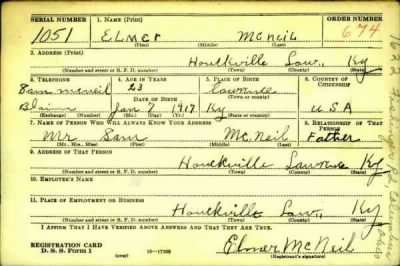 SERIAL NUMBER 1. NAME (Print) ORDER NUMBER
1051 ELMER MCNEIL 674
(First) (Middle) (Last)
2. ADDRESS (Print)
Houckville Law. Ky
(Number and street or R. F. D. number) (Town) (County) (State)
3. TELEPHONE 4. AGE IN YEARS 5. PLACE OF BIRTH 6. COUNTRY OF CITIZENSHIP
Sam McNeil 23 Lawrence
(Town or county)
DATE OF BIRTH
Blaine Jan 7 1917 Ky USA
(Exchange) (Number) (Mo.) (Day) (Yr.) (State or country)
7. NAME OF PERSON WHO WILL ALWAYS KNOW YOUR ADDRESS 8. RELATIONSHIP OF THAT PERSON
Mr. Sam McNeil Father
(Mr., Mrs., Miss) (First) (Middle) (Last)
9. ADDRESS OF THAT PERSON
Houckville Lawrence Ky
(Number and street or R. F. D. number) (Town) (County) (State)
10. EMPLOYER'S NAME
11. PLACE OF EMPLOYMENT OR BUSINESS
Houckville Law. Ky
(Number and street or R. F. D. number) (Town) (County) (State)
I AFFIRM THAT I HAVE VERIFIED ABOVE ANSWERS AND THAT THEY ARE TRUE.
REGISTRATION CARD
D. S. S. Form 1 (over) Elmer McNeil
(Registrant's signature)